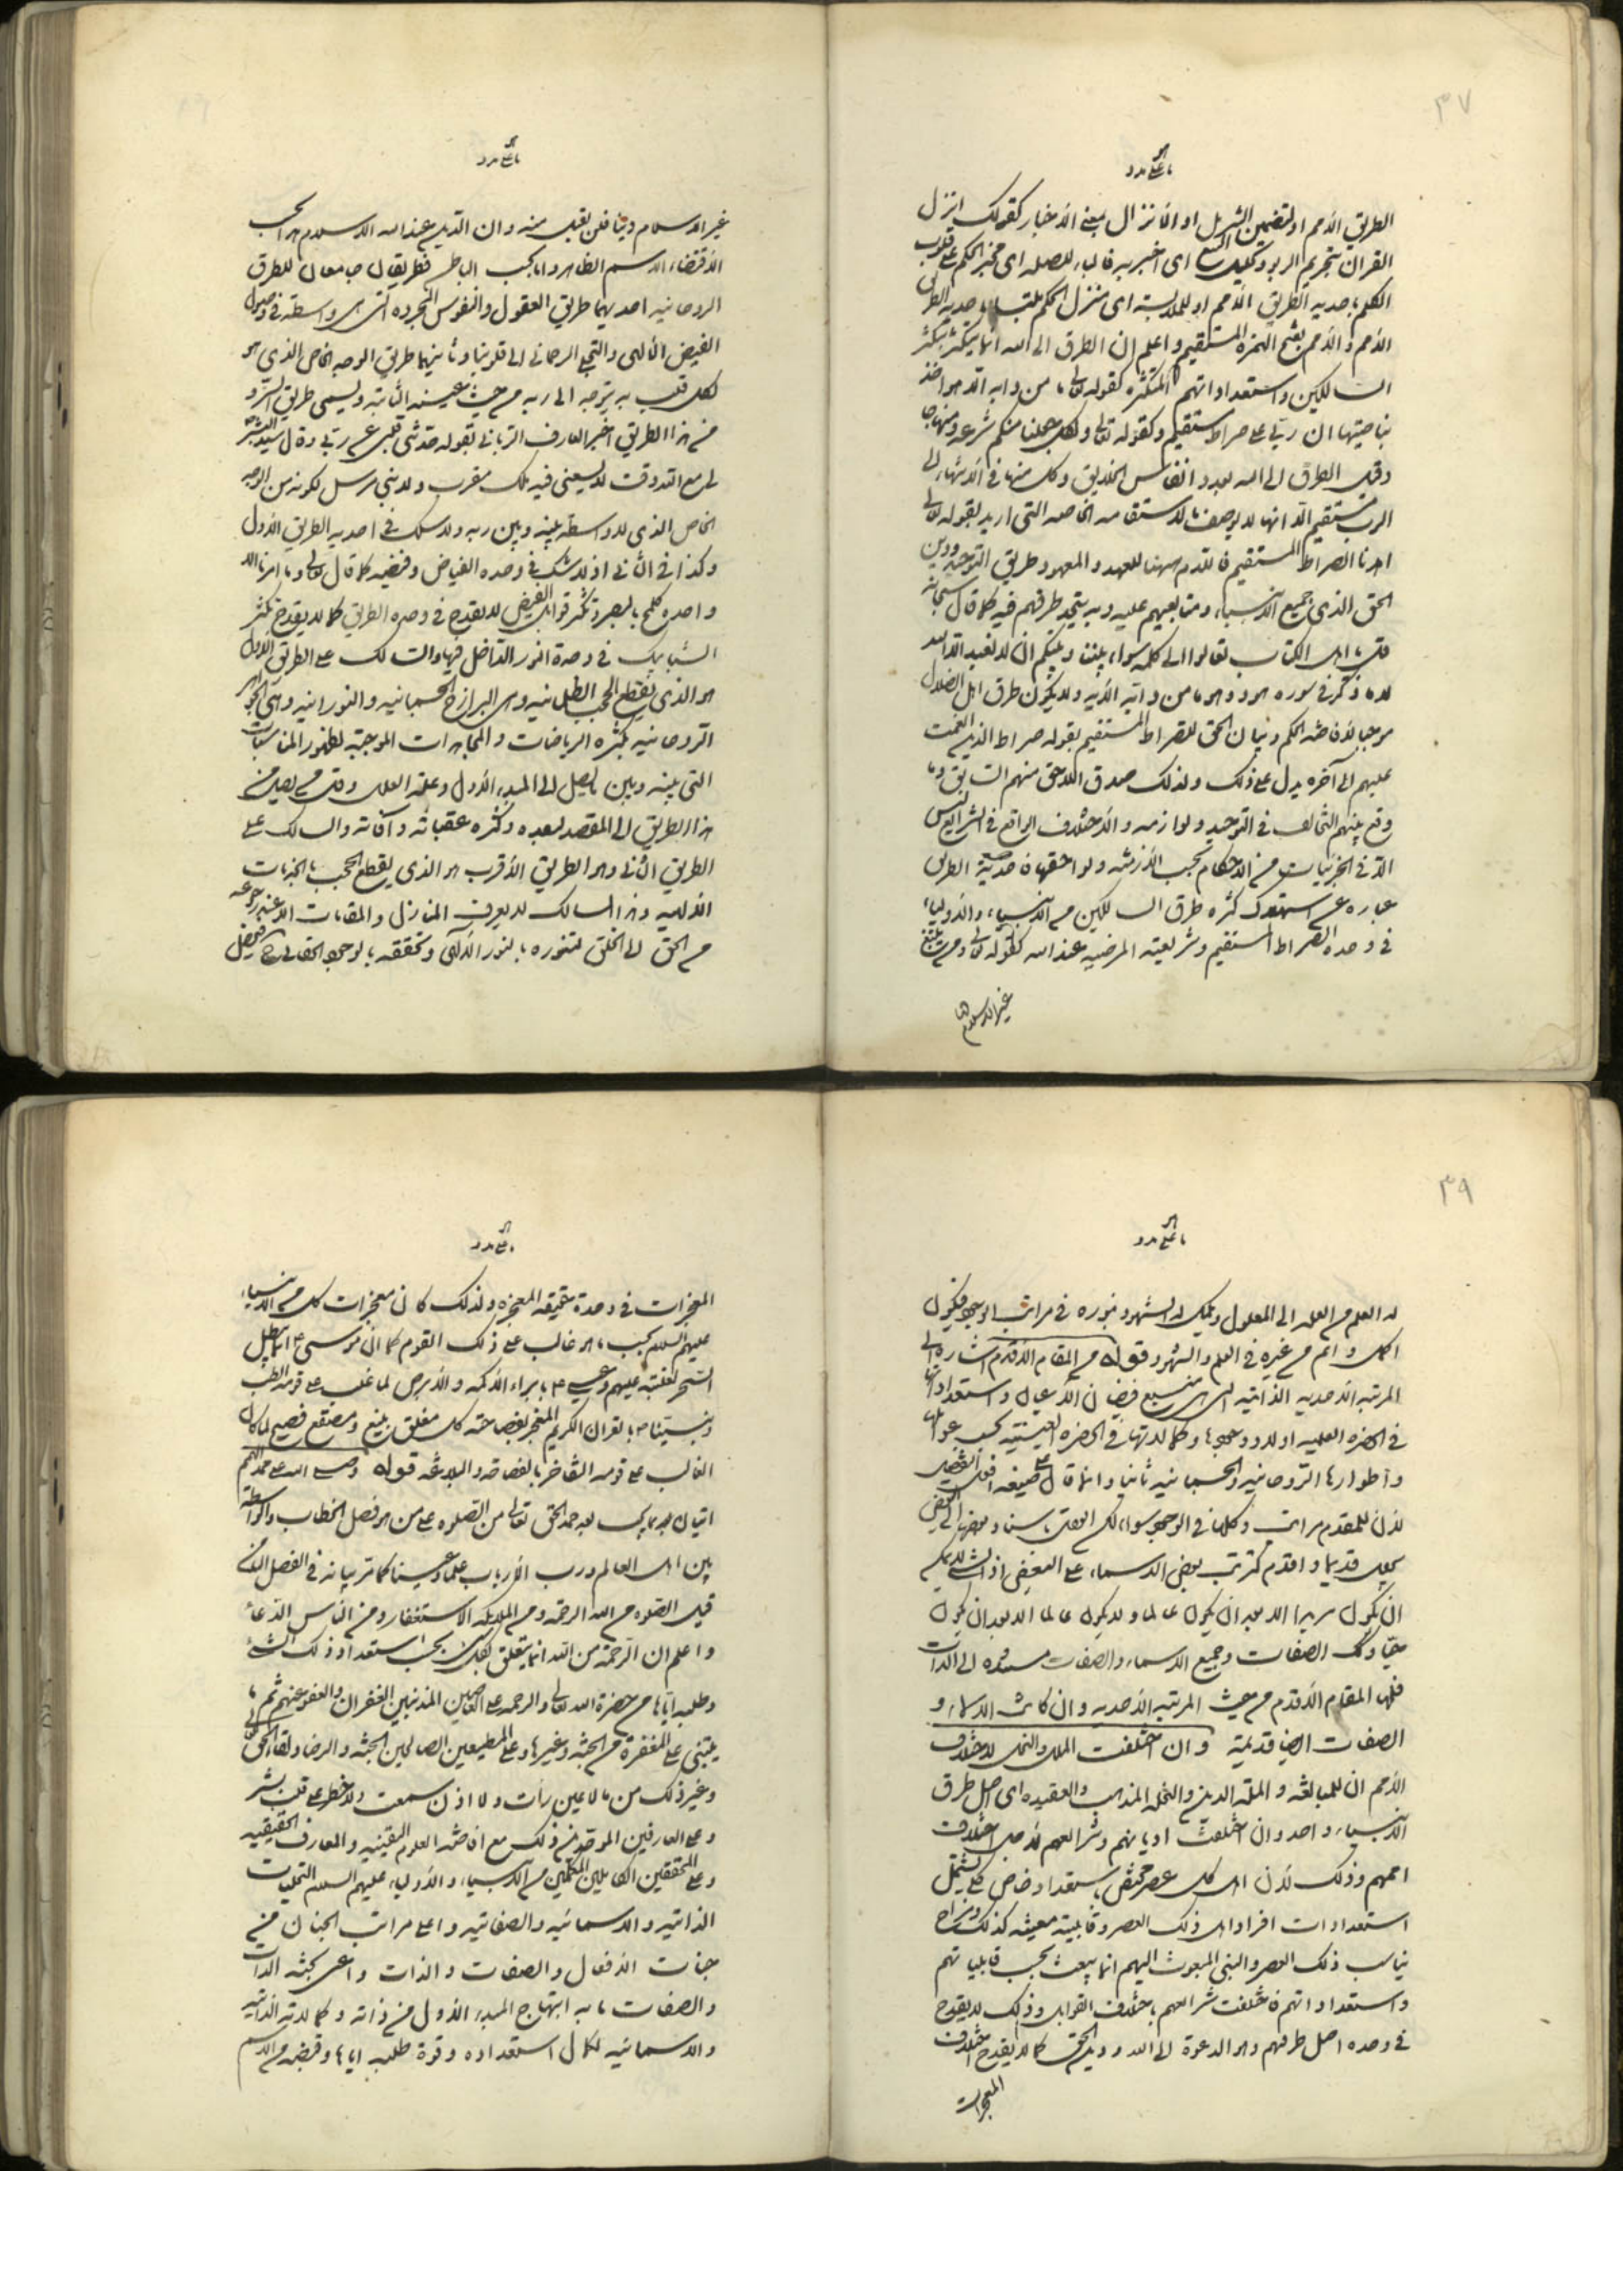 ٣٧
الطريق الأمم او لتضمين التنزيل او الانزال بمعنى الأخبار كقولك انزل
القران بتحريم الربو وتحليل البيع اى اخبر به فالباء للصله اى مخبر الحكم على قلوب
الكلم باحديه الطريق الأمم او للملابسة اى منزل الحكم ملتبسا باحديه الطريق
الأمم والأمم بفتح الهمزه المستقيم واعلم ان الطرق الى الله انما يتكثر بتكثر
السالكين واستعداداتهم المتكثره كقوله تعالى ما من دابه الا هو اخذ
بناصيتها ان ربى على صراط مستقيم وكقوله تعالى ولكل جعلنا منكم شرعة ومنهاجا
وقيل الطرق الى الله بعدد انفاس الخلايق وكل منها فى الانتهاء الى
الرب مستقيم الا انها لا يوصف بالاستقامه الخاصه التى اريد بقوله تعالى
اهدنا الصراط المستقيم فاللام ههنا للعهد والمعهود طريق التوحيد ودين
الحق الذى جميع الانبياء ومتابعيهم عليه وبه يتحد طرقهم فيه كما قال سبحانه
قل يا اهل الكتاب تعالوا الى كلمه سواء بيننا وبينكم ان لا نعبد الا الله
لا ما ذكر فى سوره هود وهو ما من دابه الآيه ولا يكون طرق اهل الضلال
موجبا لأفاضه الحكم وبيان الحق للصراط المستقيم بقوله صراط الذين انعمت
عليهم الى آخره يدل على ذلك ولذلك صدق اللاحق منهم السابق وما
وقع بينهم التخالف فى التوحيد ولوازمه والأختلاف الواقع فى الشرايع ليس
الا فى الجزئيات من الاحكام بحسب الأزمنه ولواحقها فاحدية الطريق
عباره عن استهلاك كثره طرق السالكين من الانبياء والأولياء
فى وحده الصراط المستقيم وشريعته المرضيه عند الله كقوله تعالى ومن يبتغ
غير الاسلام
غير الاسلام دينا فلن يقبل منه وان الدين عند الله الاسلام هذا بحسب
الأقتضاء الاسم الظاهر واما بحسب الباطن فطريقان جامعان للطرق
الروحانيه احديهما طريق العقول والنفوس المجرده التى هى واسطة فى وصول
الفيض الألهى والتجلى الرحمانى الى قلوبنا وثانيهما طريق الوجه الخاص الذى هو
لكل قلب به يتوجه الى ربه من حيث عينه الثابتة ويسمى طريق السر و
من هذا الطريق اخبر العارف الربانى بقوله حدثنى قلبى عن ربى وقال سيد البشر
لى مع الله وقت لا يسعنى فيه ملك مقرب ولا نبى مرسل لكونه من الوجه
الخاص الذى لا واسطة بينه وبين ربه ولا شك فى احديه الطريق الأول
وكذا فى الثانى اذ لا شك فى وحده الفياض وفيضه كما قال تعالى وما امرنا الا
واحدة كلمح بالبصر وتكثر قوابل الفيض لا يقدح فى وحده الطريق كما لا يقدح تكثر
الشبابيك فى وحدة النور الداخل فيها والسالك على الطريق الأول
هو الذى يقطع الحجب الظلمانيه وهى البرازخ الجسمانيه والنورانيه وهى الجواهر
الروحانيه بكثره الرياضات والمجاهدات الموجبة لظهور المناسبات
التى بينه وبين ما يصل الى المبدء الأول وعلة العلل وقل من يصل من
هذا الطريق الى المقصد لبعده وكثره عقباته وآفاته والسالك على
الطريق الثانى وهو الطريق الأقرب هو الذى يقطع الحجب بالجذبات
الألهيه وهذا السالك لا يعرف المنازل والمقامات الا عند رجوعه
من الحق الى الخلق لتنوره بالنور الألهى وتحققه بالوجود الحقانى
٣٩
له العلم من العله الى المعلول ويكمل له الشهود بنوره فى مراتب الوجود فيكون
اكمل واتم من غيره فى العلم والشهود قوله من المقام الأقدم اشاره الى
المرتبه الأحديه الذاتيه التى هى منبع فيضان الأعيان واستعداداتها
فى الحضره العلميه اولا ووجودها وكمالاتها فى الحضره العينية بحسب عوالمها
واطوارها الروحانيه والجسمانيه ثانيا وانما قال على صيغه افعل التفضيل
لأن للقدم مراتب وكلها فى الوجود سواء لكن العقل باسناد بعضها الى بعض
يجعل قديما واقدم كترتب بعض الاسماء على البعض اذ الشئ لا يمكن
ان يكون مريدا الا بعد ان يكون عالما ولا يكون عالما الا بعد ان يكون
حيا وكذلك الصفات وجميع الاسماء والصفات مستنده الى الذات
فلها المقام الأقدم من حيث المرتبه الأحديه وان كانت الاسماء و
الصفات ايضا قديمة وان اختلفت الملل والنحل لاختلاف
الأمم ان للمبالغه والملة الدين والنحله المذهب والعقيده اى اصل طرق
الأنبياء واحد وان اختلفت اديانهم وشرايعهم لاجل اختلاف
اممهم وذلك لأن اهل كل عصر يختص باستعداد خاص كلى يشمل
استعدادات افراد اهل ذلك العصر وقابلية معينه كذلك ومزاج
يناسب ذلك العصر والنبى المبعوث اليهم انما يبعث بحسب قابلياتهم
واستعداداتهم فاختلفت شرايعهم باختلاف القوابل وذلك لا يقدح
فى وحده اصل طرقهم وهو الدعوة الى الله ودين الحق كما لا يقدح اختلاف
المعجزات
المعجزات فى وحدة حقيقه المعجزه ولذلك كان معجزات كل من الأنبياء
عليهم السلم بحسب ما هو غالب على ذلك القوم كما اتى موسى ع بما يبطل
السحر لغلبته عليهم وعيسى ع بابراء الأكمه والأبرص لما غلب على قومه الطب
ونبينا ص بالقران الكريم المعجز بفصاحته كل مفلق بليغ ومصقع فصيح لما كان
الغالب على قومه التفاخر بالفصاحه والبلاغه قوله وصلى الله على ممد الهمم
اتيان بما يجب بعد حمد الحق تعالى من الصلوه على من هو فصل الخطاب والواسطة
بين اهل العالم ورب الأرباب علما وعينا كما مر بيانه فى الفصل الثامن
قيل الصلوه من الله الرحمة ومن الملائكه الاستغفار ومن الناس الدعاء
واعلم ان الرحمة من الله انما يتعلق بكل شئ بحسب استعداد ذلك الشئ
وطلبه اياها من حضرة الله تعالى والرحمه على العاصين المذنبين الغفران والعفو عنهم ثم ما
يبتنى على المغفرة من الجنه وغيرها وعلى المطيعين الصالحين الجنه والرضا ولقاء الحق تعالى
وغير ذلك من ما لا عين رأت ولا اذن سمعت ولا خطر على قلب بشر
وعلى العارفين الموحدين ذلك مع افاضه العلوم اليقينيه والمعارف الحقيقيه
وعلى المحققين الكاملين المكملين من الأنبياء والأولياء عليهم السلام التجليات
الذاتيه والاسمائيه والصفاتيه واعلى مراتب الجنان من
جنات الأفعال والصفات والذات واعنى بجنه الذات
والصفات ما به ابتهاج المبدء الأول من ذاته وكمالاته الذاتيه
والاسمائيه لكمال استعداده وقوة طلبه اياها وفيضه من الاسم